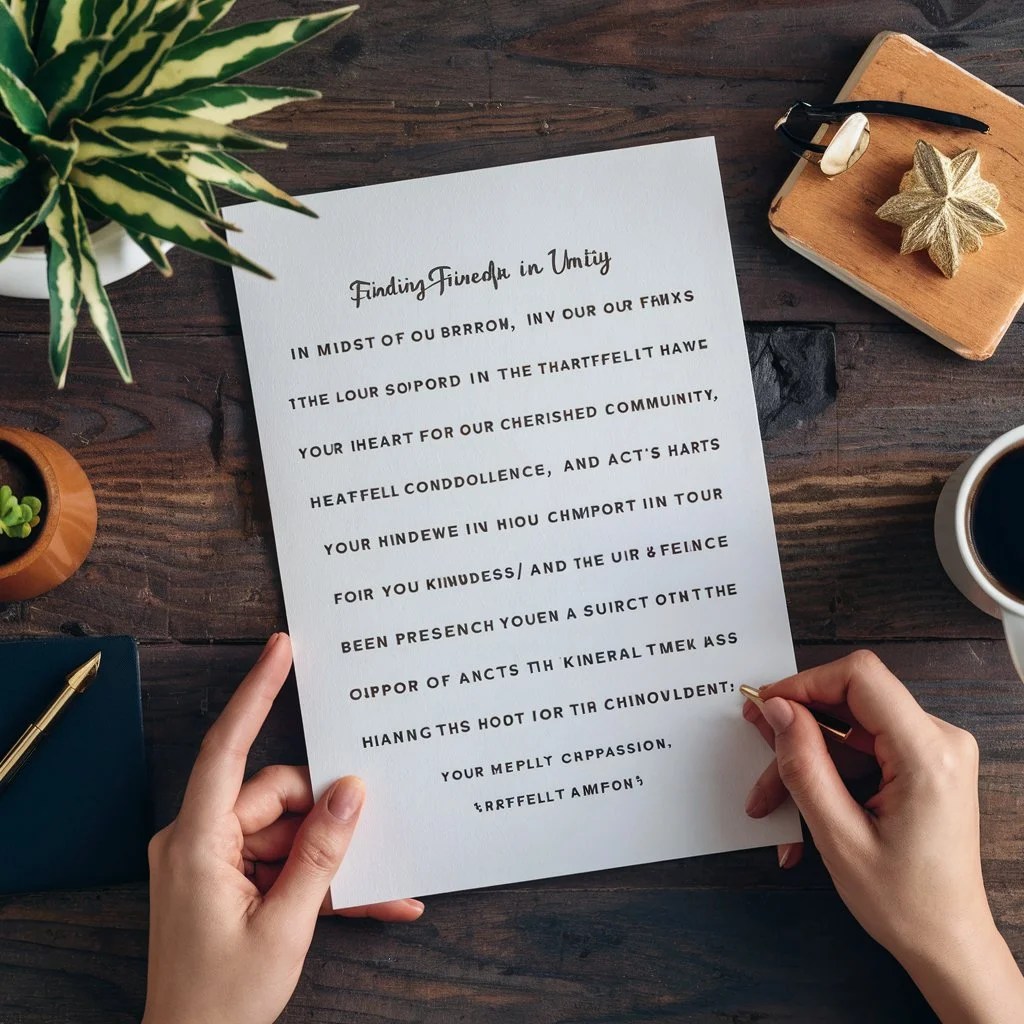 Finding Frinedn in Untiy
IN MIDST OF OU BRRROW, INV OUR OUR FAMXS
TTHE LOUR SOPPORD IN THE THARTFFELIT HAWE
YOUR IHEART FOR OUR CHERISHED COMMUNITY,
HEATFELL CONDDOLLENCE, AND ACT'S HARTS
YOUR HINDEWE IIN HIOU CHMPORT IIN TOUR
FOIR YOU KINUDESS/ AND THE UIR & FEINCE
BEEN PRESENCH YOUEN A SUIRCT OTNTTHE
OIPPOR OF ANCTS TIH KINERAL TMEK ASS
HIANNG THS HOOT IOR TIR CHINOVLDENT:
YOUR MEPLLY CRPPASSION,
RRTFELLT AMFON